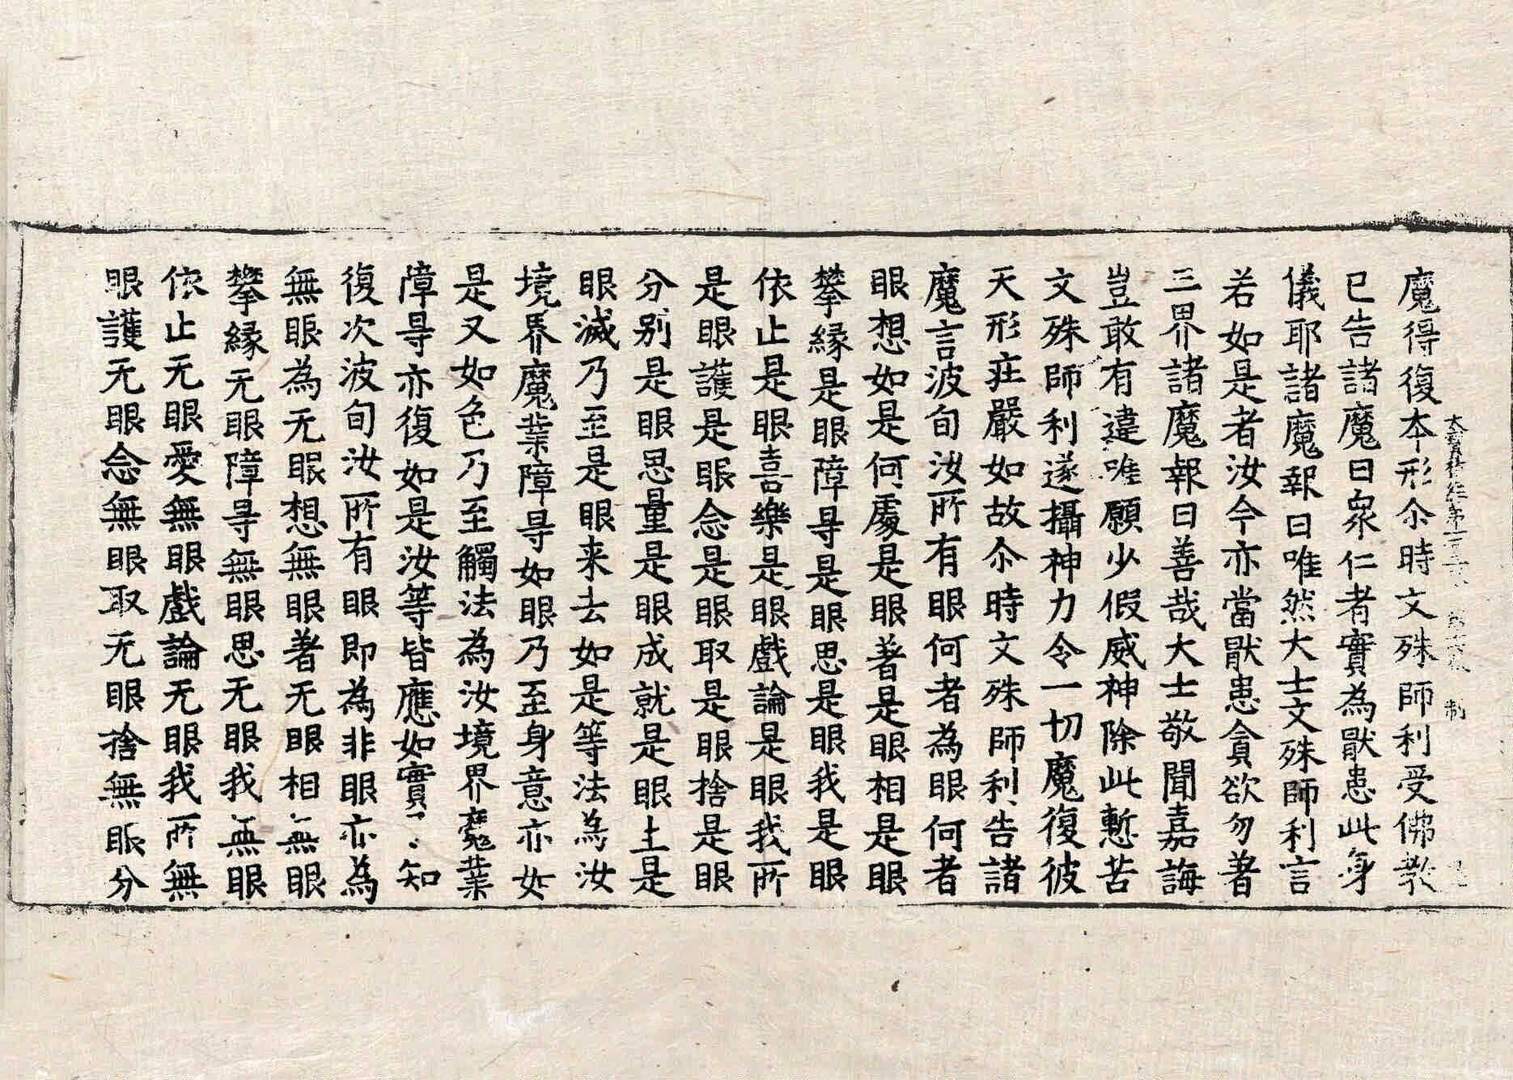 魔得復本形尒時文殊師利受佛教
已告諸魔曰衆仁者實為猒患此身
儀耶諸魔報曰唯然大士文殊師利言
若如是者汝今亦當猒患貪欲勿著
三界諸魔報曰善哉大士敬聞嘉誨
豈敢有違唯願少假威神除此慙苦
文殊師利遂攝神力令一切魔復彼
天形莊嚴如故尒時文殊師利告諸
魔言波旬汝所有眼何者為眼何者
眼想如是何處是眼著是眼相是眼
攀縁是眼障㝵是眼思是眼我是眼
依止是眼喜樂是眼戲論是眼我所
是眼護是眼念是眼取是眼捨是眼
分別是眼思量是眼成就是眼生是
眼滅乃至是眼来去如是等法為汝
境界魔業障㝵如眼乃至身意亦如
是又如色乃至觸法為汝境界魔業
障㝵亦復如是汝等皆應如實了知
復次波旬汝所有眼即為非眼亦為
無眼為无眼想無眼著无眼相無眼
攀縁无眼障㝵無眼思无眼我無眼
依止无眼愛無眼戲論无眼我所無
眼護无眼念無眼取无眼捨無眼分